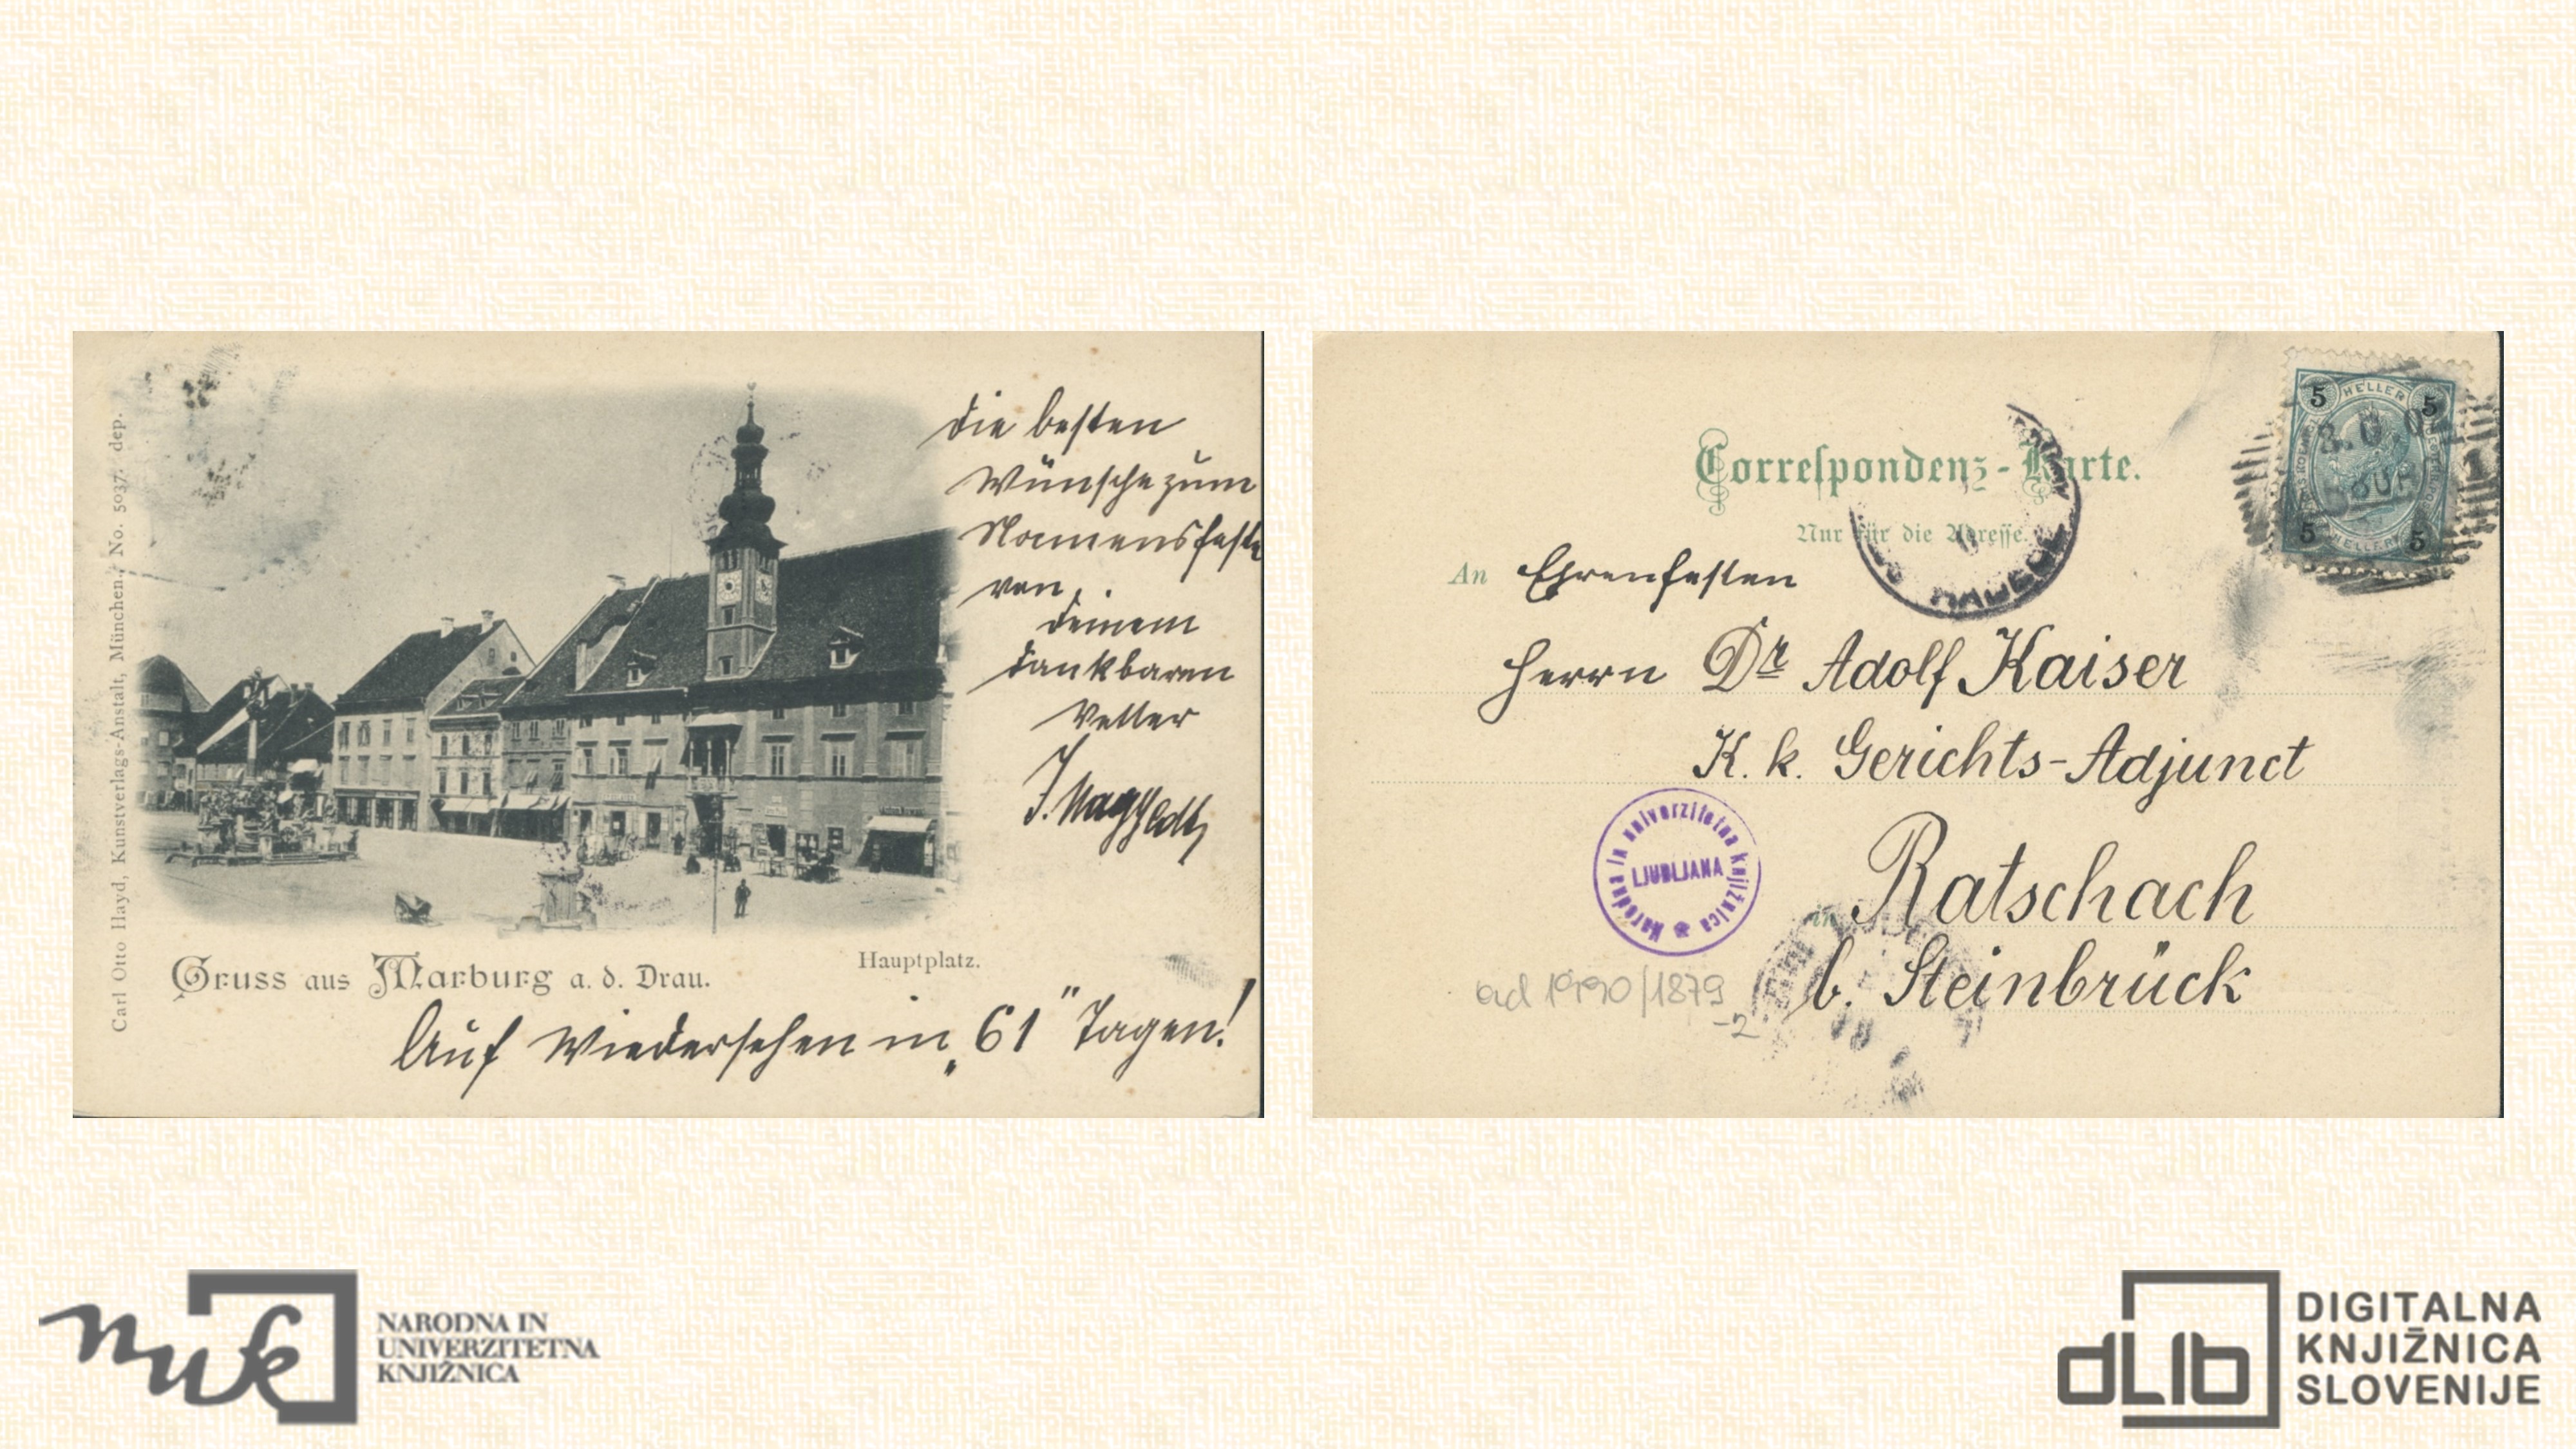 Carl Otto Hayd, Kunstverlags-Anstalt, München. No. 5037. dep.
die besten
Wünsche zum
Namensfeste
von
deinem
dankbaren
Vetter
Gruss aus Marburg a. d. Drau.
Hauptplatz.
Auf Wiedersehen in „61" Tagen!
Correspondenz-Karte.
Nur für die Adresse.
An Ehrenfesten
Herrn Dr Adolf Kaiser
K. k. Gerichts-Adjunct
in Ratschach
b. Steinbrück
5 HELLER 5
5 HELLER 5
Narodna in univerzitetna knjižnica
LJUBLJANA
nuk
NARODNA IN
UNIVERZITETNA
KNJIŽNICA
dLib
DIGITALNA
KNJIŽNICA
SLOVENIJE